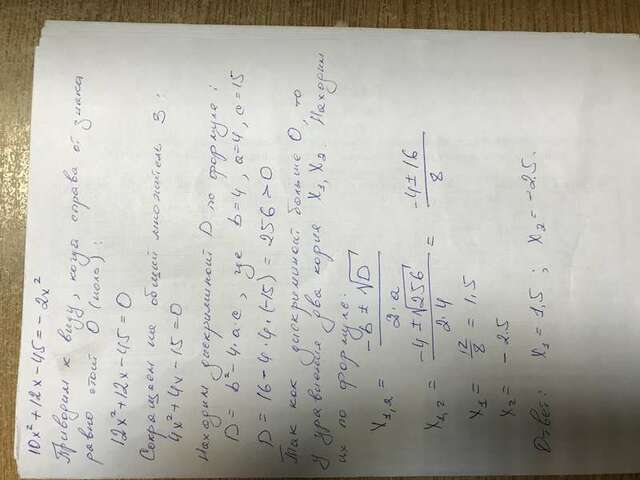 10x² + 12x - 45 = - 2x²
Приводим к виду, когда справа от знака
равно стоит 0 (ноль):
12x² + 12x - 45 = 0
Сокращаем на общий множитель 3:
4x² + 4x - 15 = 0
Находим дискриминант D по формуле:
D = b² - 4·a·c, где b=4, a=4, c=15
D = 16 - 4·4·(-15) = 256 > 0
Так как дискриминант больше 0, то
у уравнения два корня x₁, x₂. Находим
их по формуле:
x₁,₂ = (-b ± √D) / (2·a)
x₁,₂ = (-4 ± √256) / (2·4) = (-4 ± 16) / 8
x₁ = 12/8 = 1,5
x₂ = - 2.5
Ответ: x₁ = 1,5 ; x₂ = -2.5.